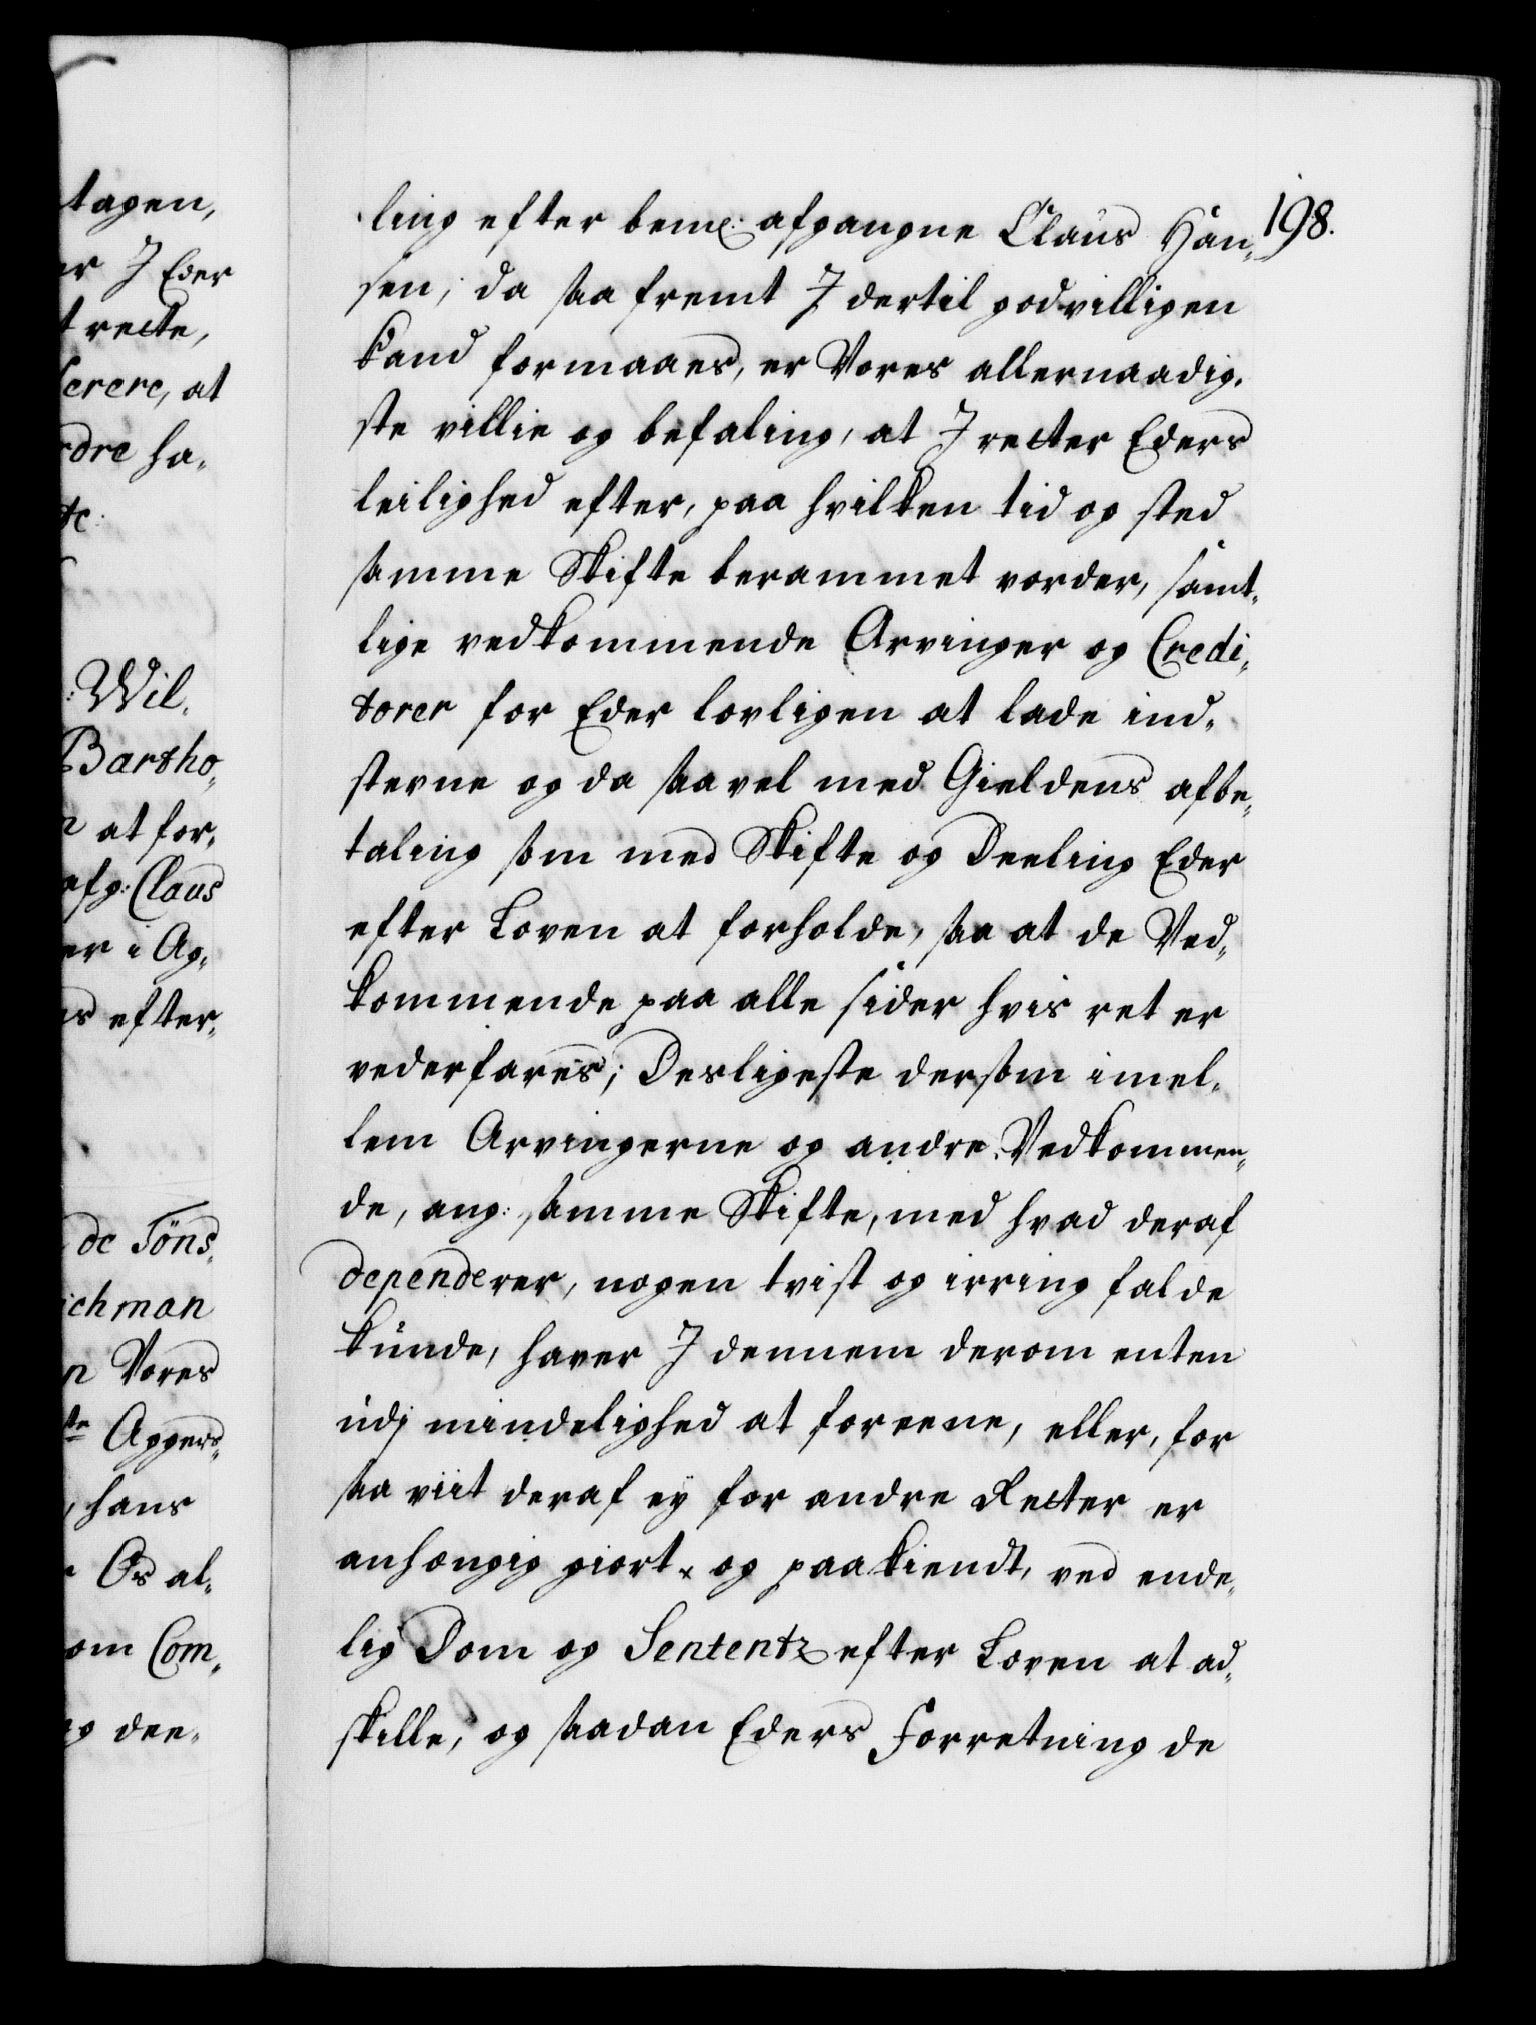 tagen,
er J Eder
t recte,
ferere, at
rdre ha-
tc:
Wil-
Bartho-
n at for-
afg: Claus
er i Ag-
es efter-
de Töns-
ichman
n Vores
te Aggers-
, hans
Os al-
om Com-
og dee-
198.
ling efter bemte: afgangne Claus Han-
sen, da saa fremt J dertil godvilligen
kand formaaes, er Vores allernaadig-
ste villie og befaling, at J retter Eders
leilighed efter, paa hvilken tid og sted
samme Skifte berammet vorder, samt-
lige vedkommende Arvinger og Credi-
torer for Eder lovligen at lade ind-
stevne og da saavel med Gieldens afbe-
taling som med Skifte og Deeling Eder
efter Loven at forholde, saa at de Ved-
kommende paa alle sider hvis ret er
vederfares; Desligeste dersom imel-
lem Arvingerne og andre Vedkommen-
de, ang: samme Skifte, med hvad deraf
dependerer, nogen tvist og irring falde
kunde, haver J dennem derom enten
udj mindelighed at foreene, eller, for
saa viit deraf ey for andre Retter er
anhængig giort og paakiendt, ved ende-
lig Dom og Sententz efter Loven at ad-
skille, og saadan Eders Forretning de